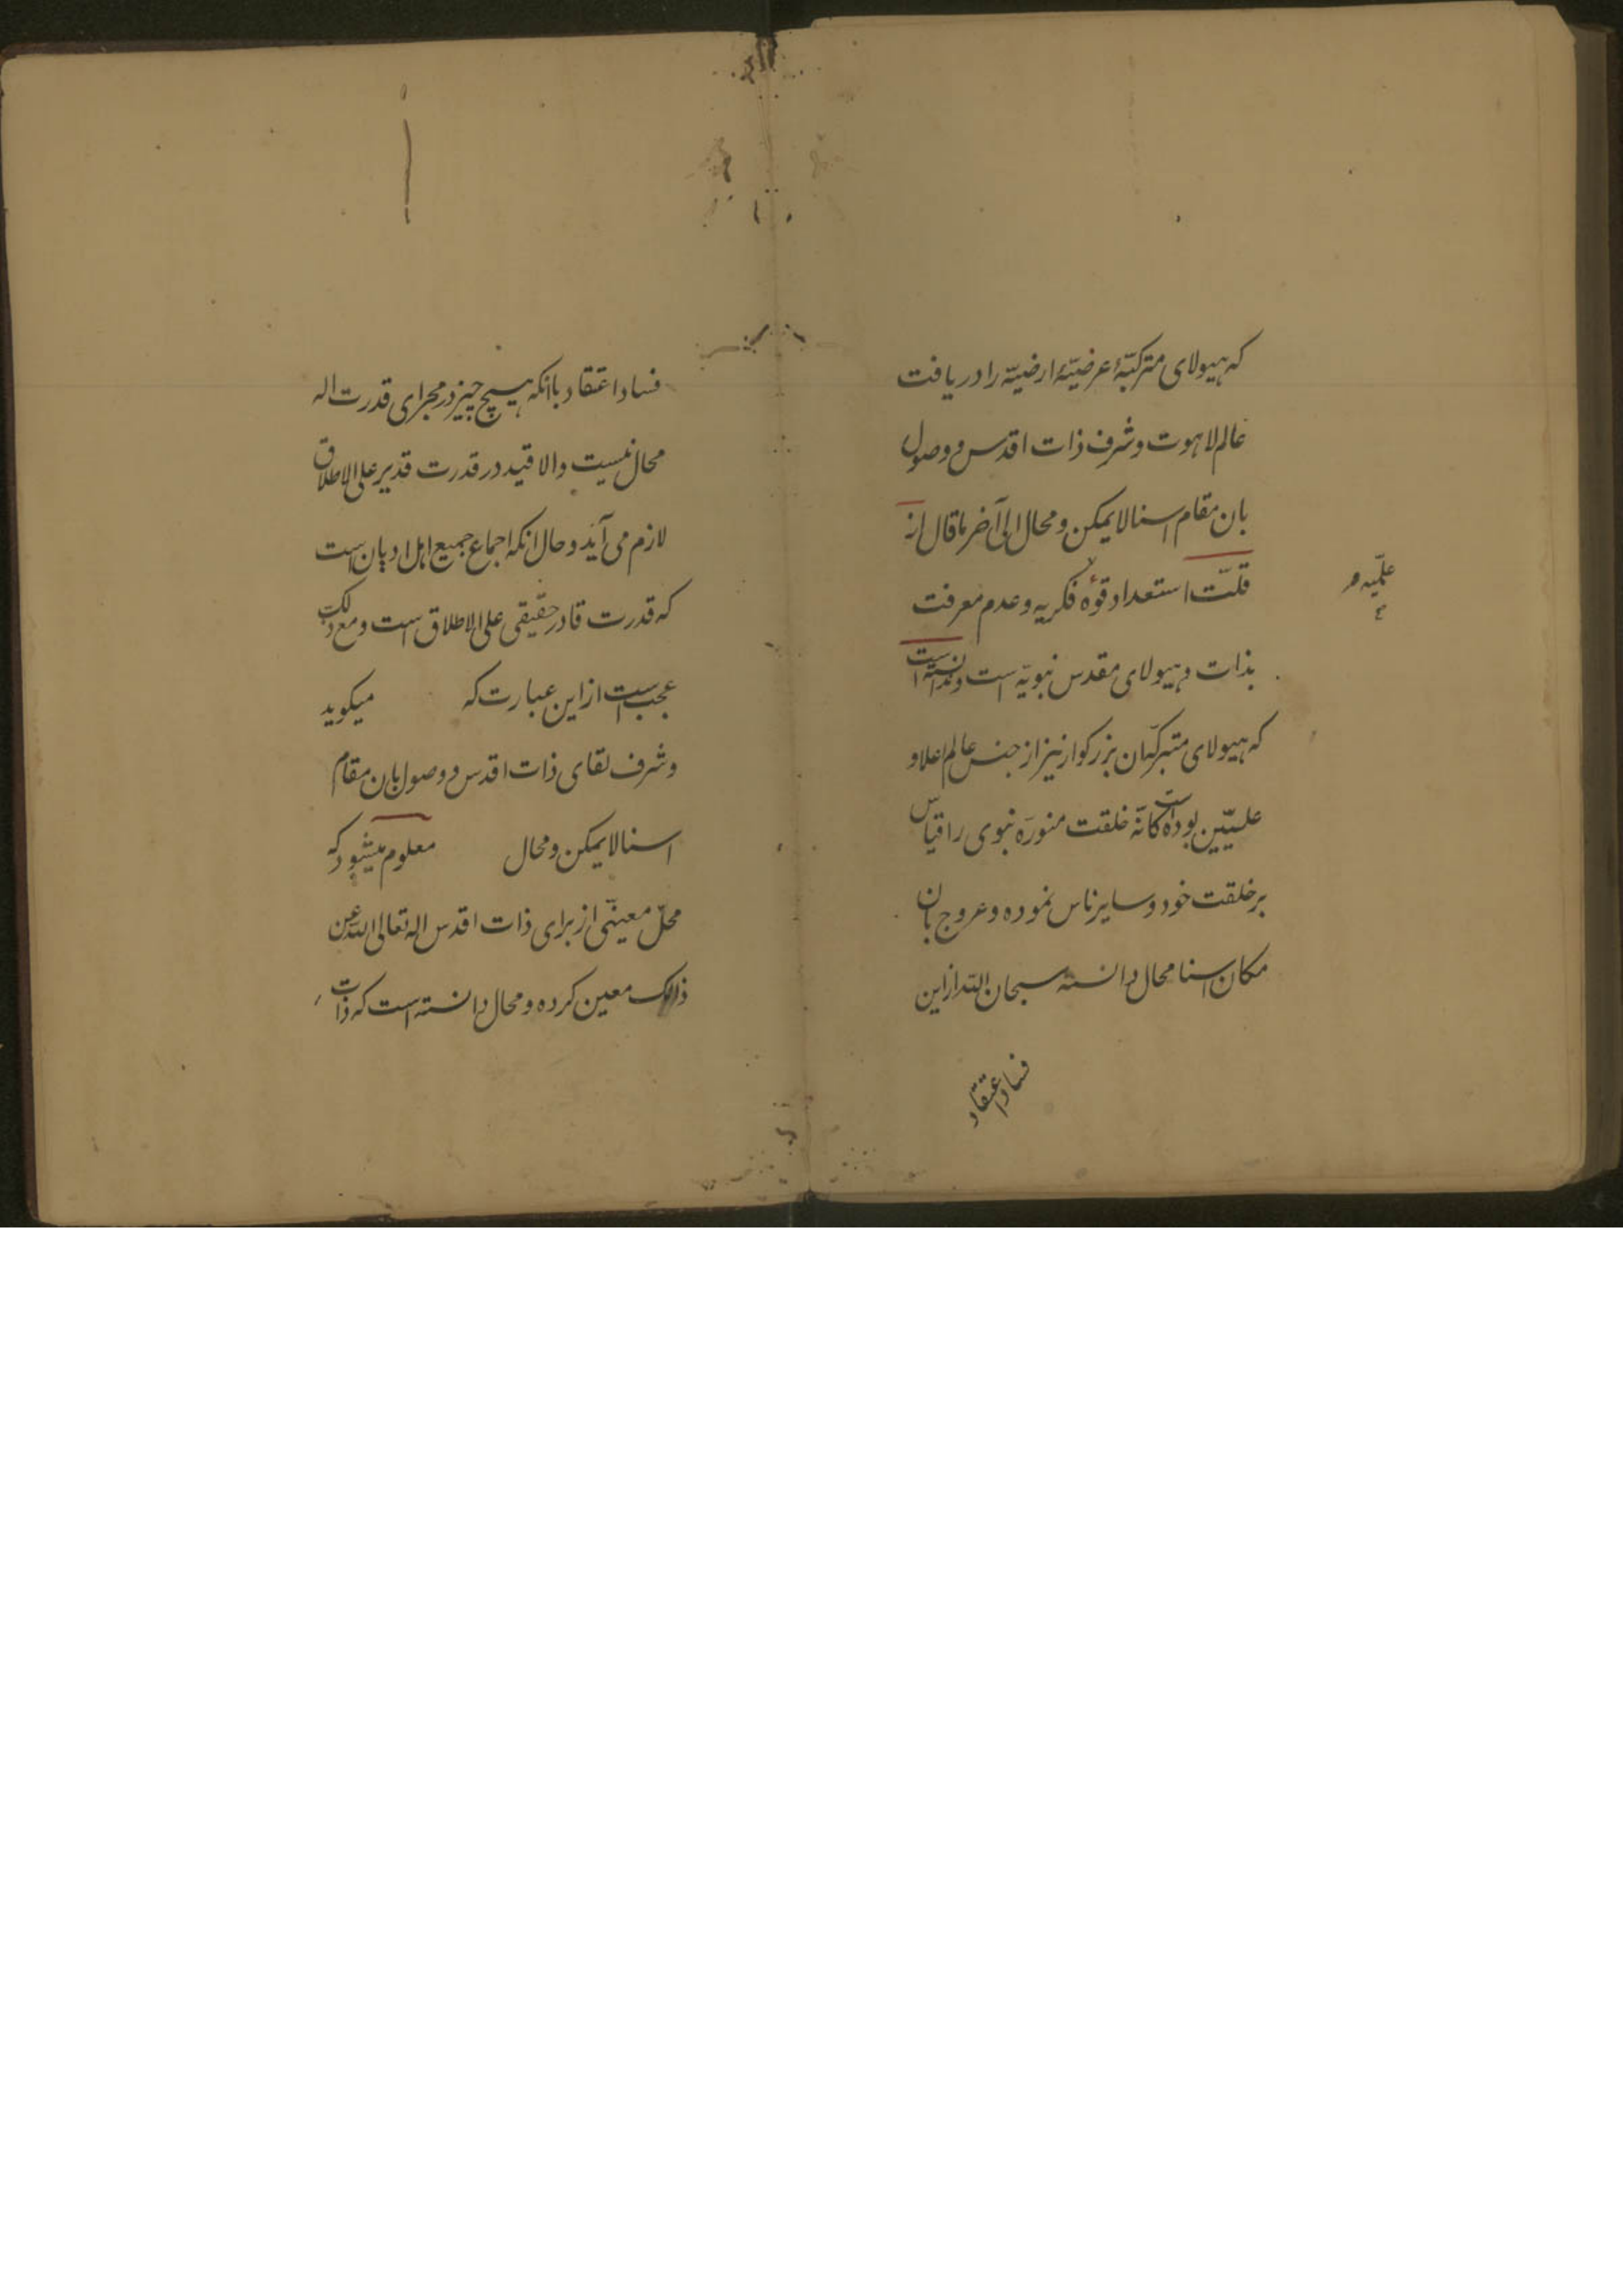 که هیولای مترکبّهٔ عرضیّهٔ ارضیّه را دریافت
عالم لاهوت و شرف ذات اقدس و وصول
بان مقام اسنا لا یمکن و محال الی آخر ما قال از
قلّت استعداد قوّه فکریه و عدم معرفت
علمّیه
بذات و هیولای مقدس نبویّه است و ندانسته است
که هیولای متبرکّ ان بزرکوار نیز از جنس عالم اعلا و
علییّین بوده است کانّه خلقت منورّه نبوی را قیاس
بر خلقت خود و سایر ناس نموده و عروج بان
مکان اسنا محال دانسته سبحان الله از این
فساد اعتقاد
فساد اعتقاد با انکه هیچ چیز در مجرای قدرت اله
محال نیست و الا قید در قدرت قدیر علی الاطلاق
لازم می آید و حال انکه اجماع جمیع اهل ادیان است
که قدرت قادر حقیقی علی الاطلاق است و مع ذلک
عجب است از این عبارت که میکوید
و شرف لقای ذات اقدس و وصول بان مقام
اسنا لا یمکن و محال معلوم میشود که
محلّ معینّی از برای ذات اقدس اله تعالی الله عن
ذالک معین کرده و محال دانسته است که ذات